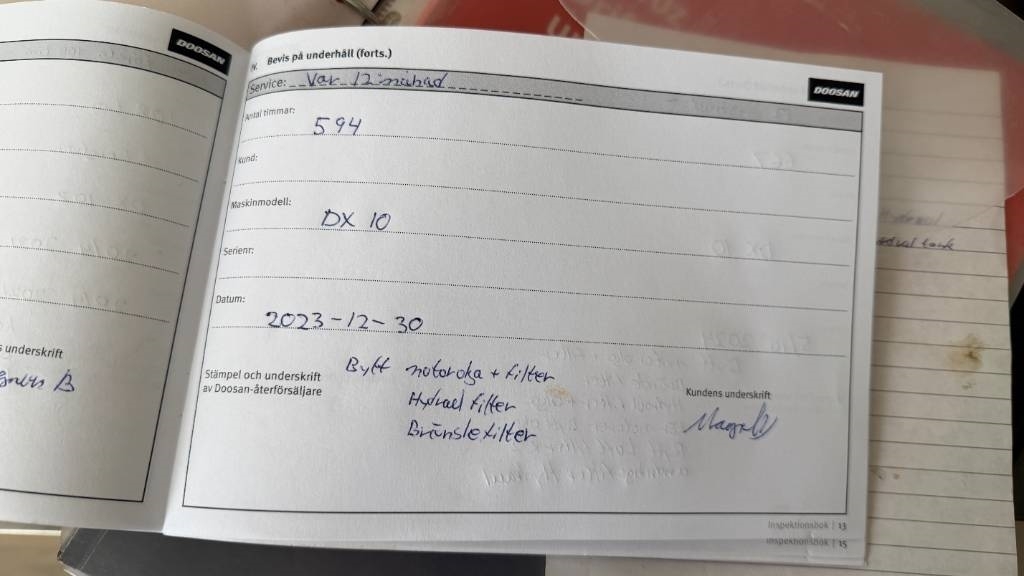 DOOSAN
IV. Bevis på underhåll (forts.)
Service: Var 12 månad
DOOSAN
Antal timmar:
594
Kund:
Maskinmodell:
DX 10
Serienr:
Datum:
2023-12-30
s underskrift
Stämpel och underskrift
av Doosan-återförsäljare
Bytt motorolja + filter
Hydraul filter
Bränslefilter
Kundens underskrift
Inspektionsbok | 13
Inspektionsbok | 15